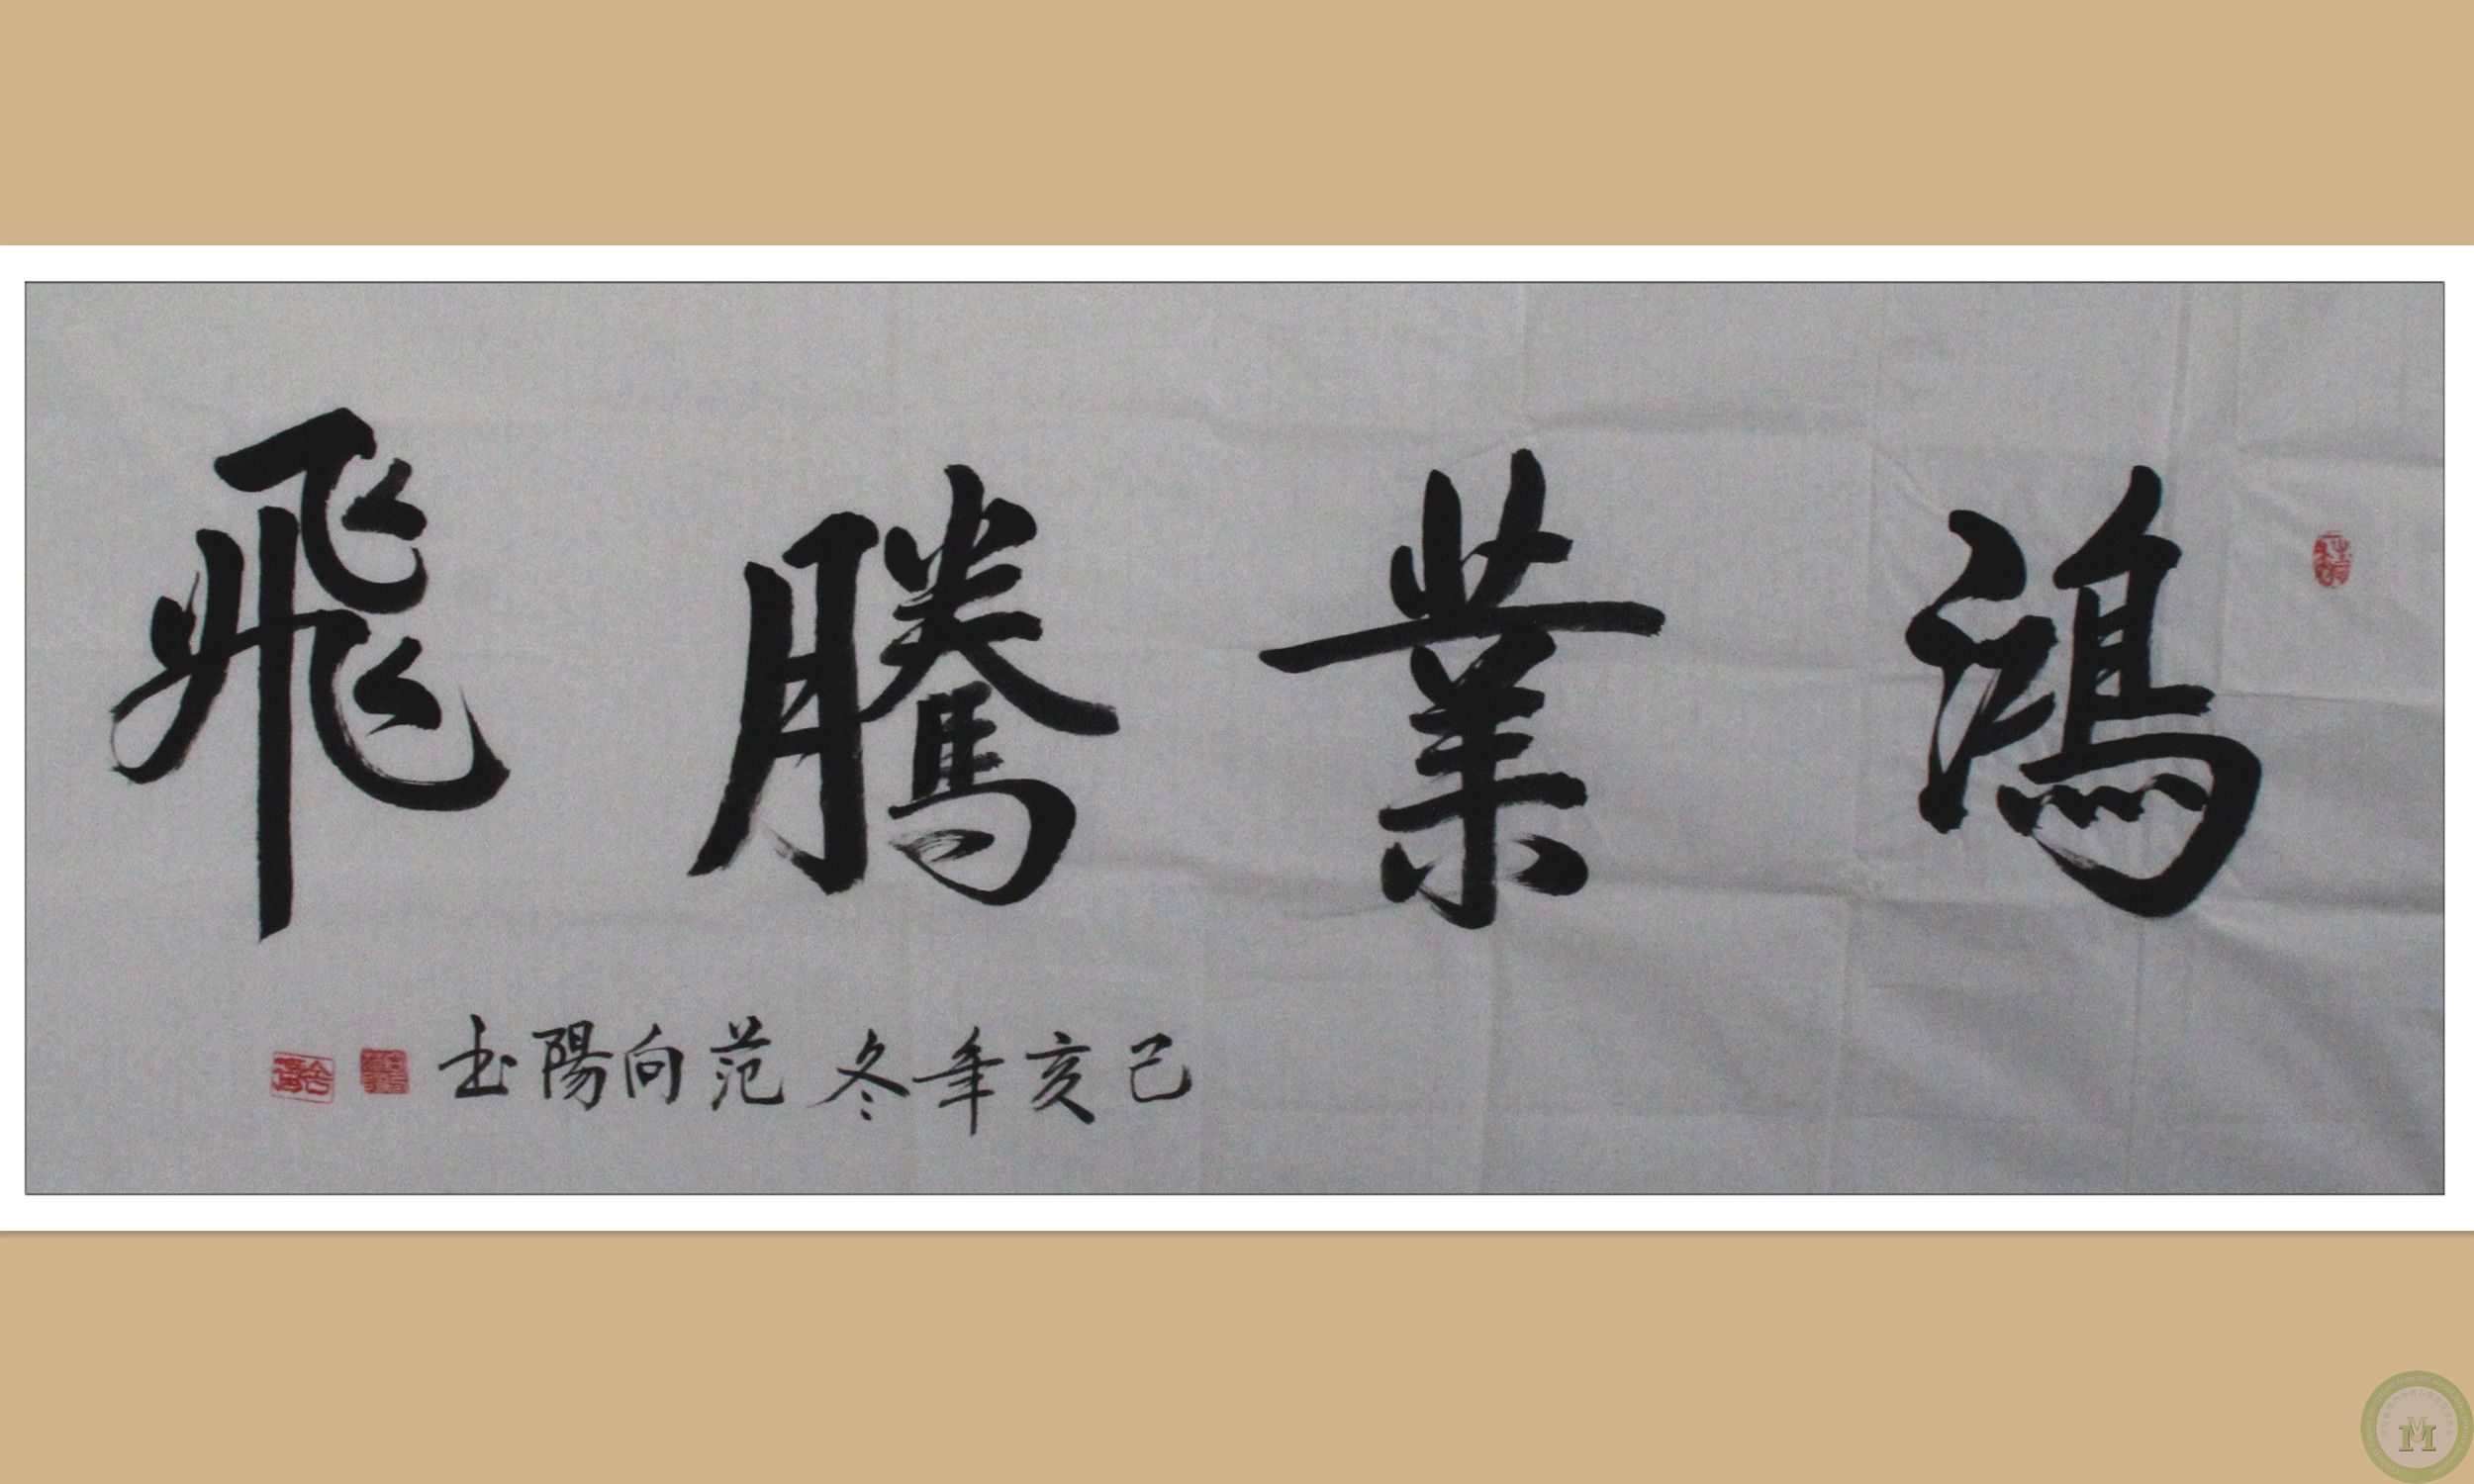 鴻業騰飛
己亥年冬 范向陽书